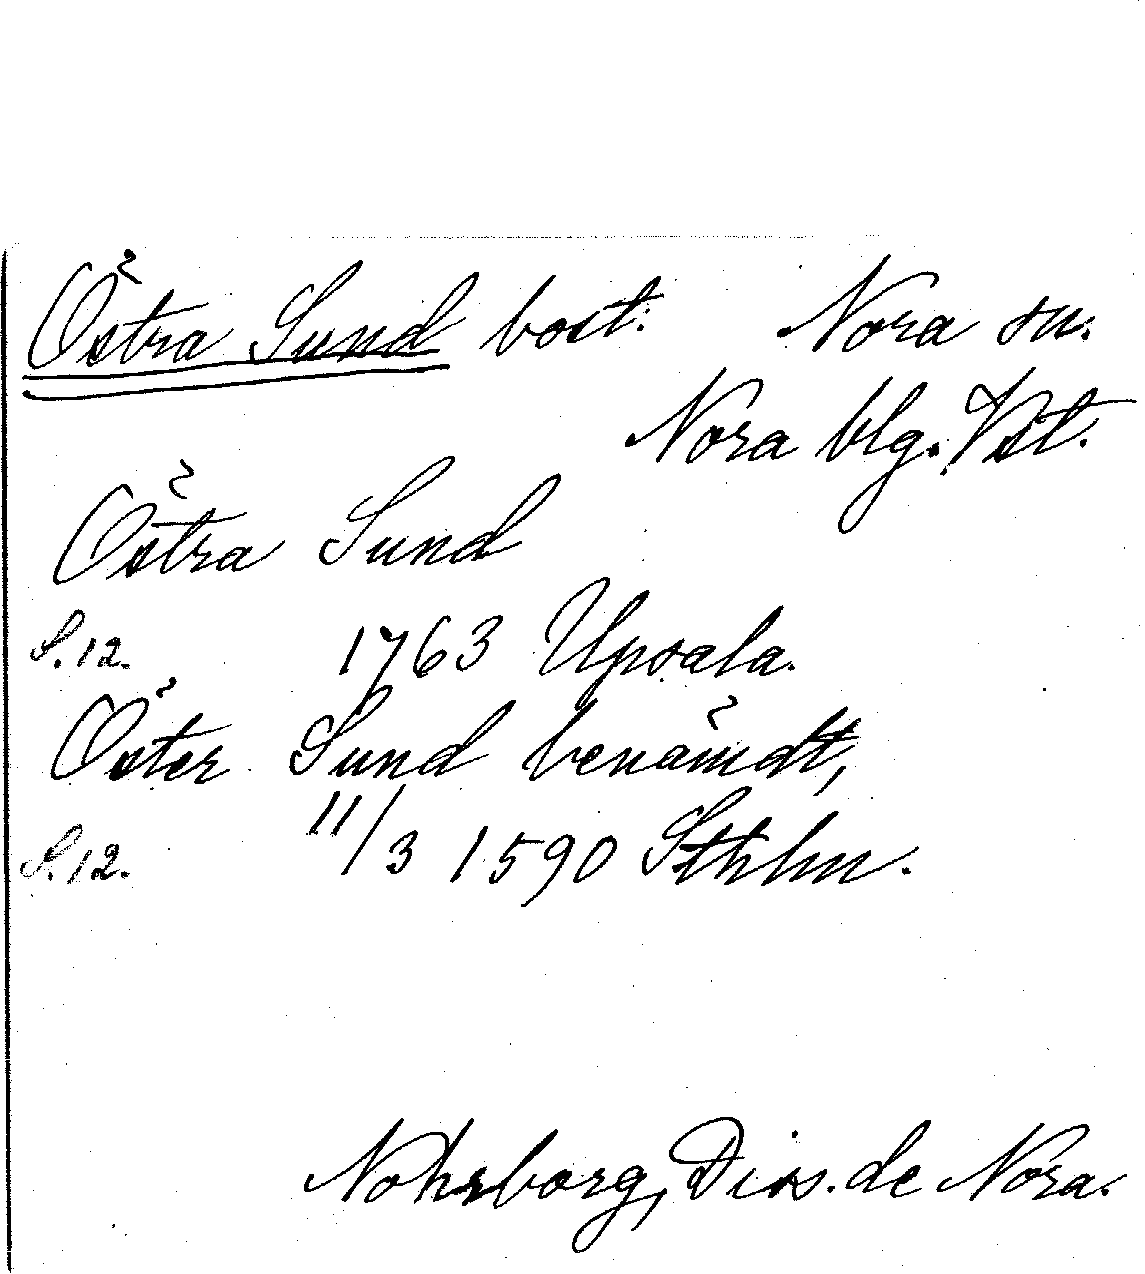 Östra Sund bost. Nora sn.
Nora blg. Vst.
Östra Sund
S. 12. 1763 Upsala.
Öster Sund benämdt,
S. 12. 11/3 1590 Sthlm.
Nohrborg, Diss. de Nora.